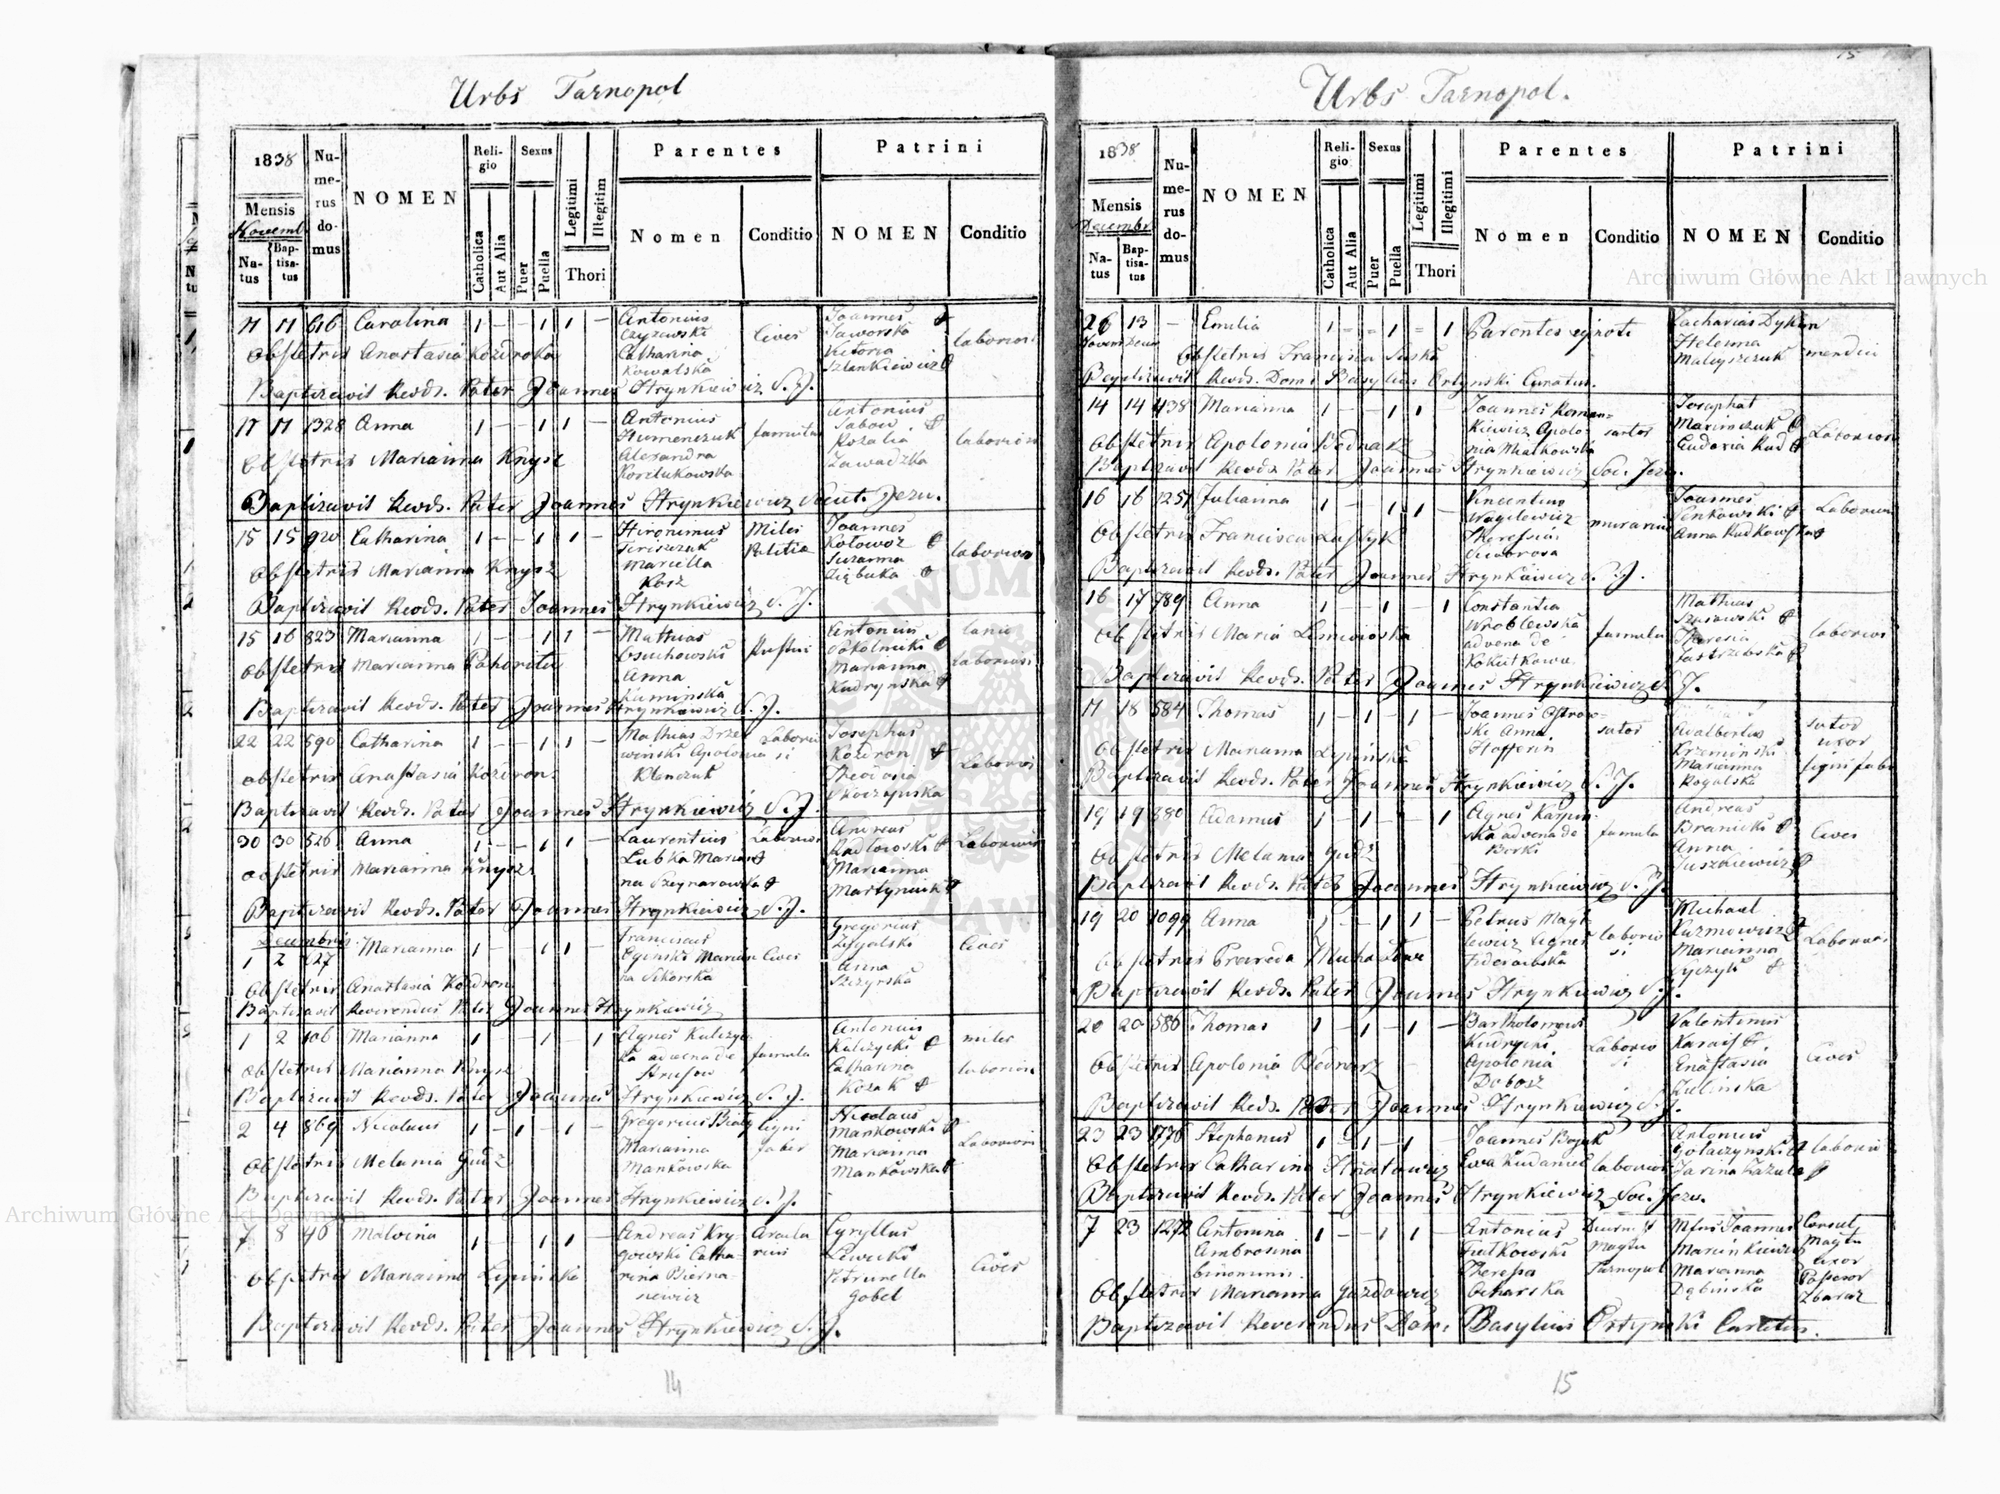 Urbs Tarnopol
1838
Mensis
Novemb
Natus
Baptisatus
Numerus domus
NOMEN
Religio
Catholica
Aut Alia
Sexus
Puer
Puella
Legitimi
Illegitimi
Thori
Parentes
Nomen
Conditio
Patrini
NOMEN
Conditio
11 11 616 Carolina 1 - - 1 1 - Antonius Czyzewski Catharina Kowalska Cives Joannes Jaworski Victoria Szlankiewicz laboriosi
Obstetrix Anastasia Kozdroka
Baptizavit Revds. Pater Joannes Hrynkiewicz S. J.
17 17 1328 Anna 1 - - 1 1 - Antonius Humenczuk Alexandra Korzlukowska famulus Antonius Sobow Rozalia Zawadzka laboriosi
Obstetrix Marianna Knysz
Baptizavit Revds. Pater Joannes Hrynkiewicz Societ. Jezu.
15 15 920 Catharina 1 - - 1 1 - Hironimus Marcella Korz Miles Politiae Joannes Kotowoz Zuzanna laboriosi
Obstetrix Marianna Knysz
Baptizavit Revds. Pater Joannes Hrynkiewicz S. J.
15 16 823 Marianna 1 - - 1 1 - Mathias Osuchowski Anna Kaminska Antonius Sokolnicki Marianna Kudrynska lanio laboriosi
Obstetrix Marianna Pohorila
Baptizavit Revds. Pater Joannes Hrynkiewicz S. J.
22 22 590 Catharina 1 - - 1 1 - Mathias Drzewinski Apolonia Klenczuk Laboriosi Josephus Kozdron Theodosia Skoczynska Laboriosi
Obstetrix Anastasia Kozdron
Baptizavit Revds. Pater Joannes Hrynkiewicz S. J.
30 30 526 Anna 1 - - 1 1 - Laurentius Lubka Marianna Laboriosi Andreas Kadlowski Marianna Martyniuk Laboriosi
Obstetrix Marianna Knysz
Baptizavit Revds. Pater Joannes Hrynkiewicz S. J.
Decembris
1 2 827 Marianna 1 - - 1 1 - Franciscus Oginski Marianna Sikorska Cives Gregorius Zygalski Anna Szczyrska Cives
Obstetrix Anastasia Kozdron
Baptizavit Reverendus Pater Joannes Hrynkiewicz
1 2 106 Marianna 1 - - 1 - 1 Agnes Kulczycka advena de Strusow famula Antonius Kulczycki Catharina Kozak miles laboriosa
Obstetrix Marianna Knysz
Baptizavit Revds. Pater Joannes Hrynkiewicz S. J.
2 4 869 Nicolaus 1 - 1 - 1 - Gregorius Bialy Marianna Mankowska ligni faber Nicolaus Mankowski Marianna Mankowska Laboriosi
Obstetrix Melania Gudz
Baptizavit Revds. Pater Joannes Hrynkiewicz S. J.
7 8 46 Malvina 1 - - 1 1 - Andreas Krygowski Catharina Biernasiewicz Cyryllus Lewicki Petrunella Gobel Cives
Obstetrix Marianna Lipinska
Baptizavit Revds. Pater Joannes Hrynkiewicz S. J.
14
15
Urbs Tarnopol.
1838
Mensis
Decembr
Natus
Baptisatus
Numerus domus
NOMEN
Religio
Catholica
Aut Alia
Sexus
Puer
Puella
Legitimi
Illegitimi
Thori
Parentes
Nomen
Conditio
Patrini
NOMEN
Conditio
26 13 - Emilia 1 - - 1 - 1 Parentes ignoti Zacharias Dytkun Helena Maluszczuk mendici
Obstetrix Francisca
Baptizavit Revds. Dom. Basylius Ortynski Curatus.
14 14 438 Marianna 1 - - 1 1 - Joannes Romankiewicz Apolonia Miatkowska sartor Josaphat Marinczuk Eudoxia Rud Laboriosi
Obstetrix Apolonia Bednarz
Baptizavit Revds. Pater Joannes Hrynkiewicz Soc. Jezu.
16 16 1251 Julianna 1 - - 1 1 - Vincentius Wagilewicz Theresia Siworowa murarius Joannes Penkowski Anna Rudkowska Laboriosi
Obstetrix Francisca Lastyk
Baptizavit Revds. Pater Joannes Hrynkiewicz S. J.
16 17 789 Anna 1 - - 1 - 1 Constantia Wroblewska advena de famula Mathias Theresia Jastrzebska laboriosi
Obstetrix Maria Lisniowska
Baptizavit Revds. Pater Joannes Hrynkiewicz S. J.
17 18 584 Thomas 1 - 1 - 1 - Joannes Ostrowski Anna Hofferin sartor Adalbertus Krzeminski Marianna Rogalska sutor uxor ligni fabri
Obstetrix Marianna Lipinska
Baptizavit Revds. Pater Joannes Hrynkiewicz S. J.
19 19 880 Adamus 1 - 1 - - 1 Agnes Karpinska advena de Borki famula Andreas Branicki Anna Juszkiewicz Cives
Obstetrix Melania Gudz
Baptizavit Revds. Pater Joannes Hrynkiewicz S. J.
19 20 1099 Anna 1 - - 1 1 - Petrus Agnes laboriosi Michael Kuzmowicz Marianna Laboriosi
Obstetrix
Baptizavit Revds. Pater Joannes Hrynkiewicz S. J.
20 20 586 Thomas 1 - 1 - 1 - Bartholomeus Kudrycki Apolonia Dobosz Laboriosi Valentinus Karas Enastasia Kulinska Cives
Obstetrix Apolonia Bednarz
Baptizavit Revds. Pater Joannes Hrynkiewicz S. J.
23 23 1776 Stephanus 1 - 1 - 1 - Joannes Bojuk Ewa Kudaniec laboriosi Antonius Golaczynski Laboriosi
Obstetrix Catharina Hnatowicz
Baptizavit Revds. Pater Joannes Hrynkiewicz Soc. Jezu.
7 23 1272 Antonina Ambrosina binominis. 1 - - 1 1 - Antonius Fiutkowski Theressa Ocharska Magtu Tarnopol Joannes Marinkiewicz Marianna Dąbinska Consul Magtu uxor Possesor Zbaraz
Obstetrix Marianna Gazdowicz
Baptizavit Reverendus Dom. Basylius Ortynski Curatus.
15
Archiwum Główne Akt Dawnych
Archiwum Główne Akt Dawnych